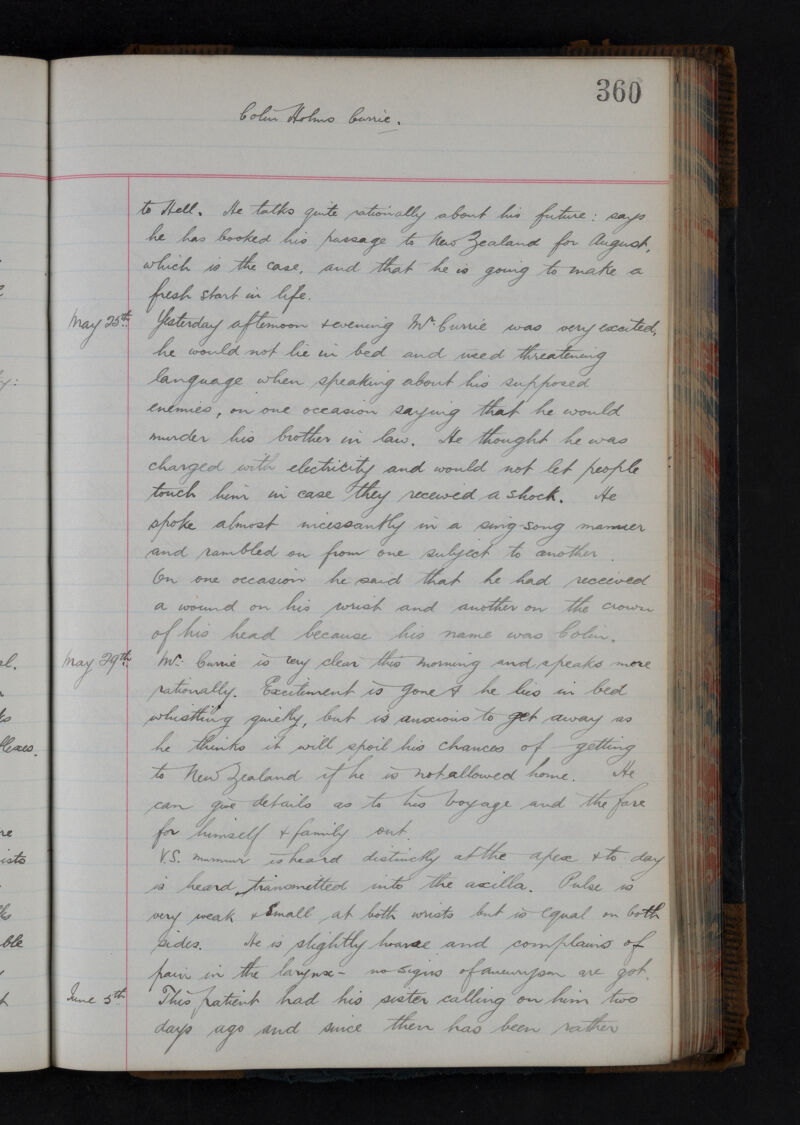 360
Colin Holms Currie.
to Hell. He talks quite rationally about his future: says
he has booked his passage to New Zealand for August,
which is the case, and that he is going to make a
fresh start in life.
May 25th. Yesterday afternoon & evening Mr. Currie was very excited,
he would not lie in bed and used threatening
language when speaking about his supposed
enemies, on one occasion saying that he would
murder his brother in law. He thought he was
charged with electricity and would not let people
touch him in case they received a shock. He
spoke almost incessantly in a sing-song manner
and rambled on from one subject to another.
On one occasion he said that he had received
a wound on his wrist and another on the crown
of his head because his name was Colin.
May 29th. Mr. Currie is very clear this morning and speaks more
rationally. Excitement is gone & he lies in bed
whistling quietly, but is anxious to get away as
he thinks it will spoil his chances of getting
to New Zealand if he is not allowed home. He
can give details as to his voyage and the fare
for himself & family out.
V.S. murmur is heard distinctly at the apex & to-day
is heard transmitted into the axilla. Pulse is
very weak & small at both wrists but is equal on both
sides. He is slightly hoarse and complains of
pain in the larynx – no signs of aneurysm are got.
June 5th. This patient had his sister calling on him two
days ago and since then has been rather